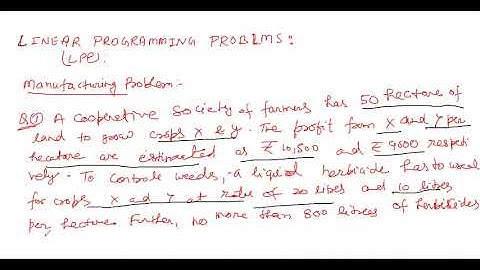 LINEAR PROGRAMMING PROBLMS:
(LPP).
Manufacturing Problem -
Q.① A cooperative Society of farmers has 50 hectare of
land to grow crops X & y. The profit from X and Y per
hectare are estimated as ₹ 10,500 and ₹ 9000 respecti
vely - To controle weeds, a liquid herbicide has to used
for crops X and Y at rate of 20 lites and 10 lites
per hecture. Further, no more than 800 litres of herbicides